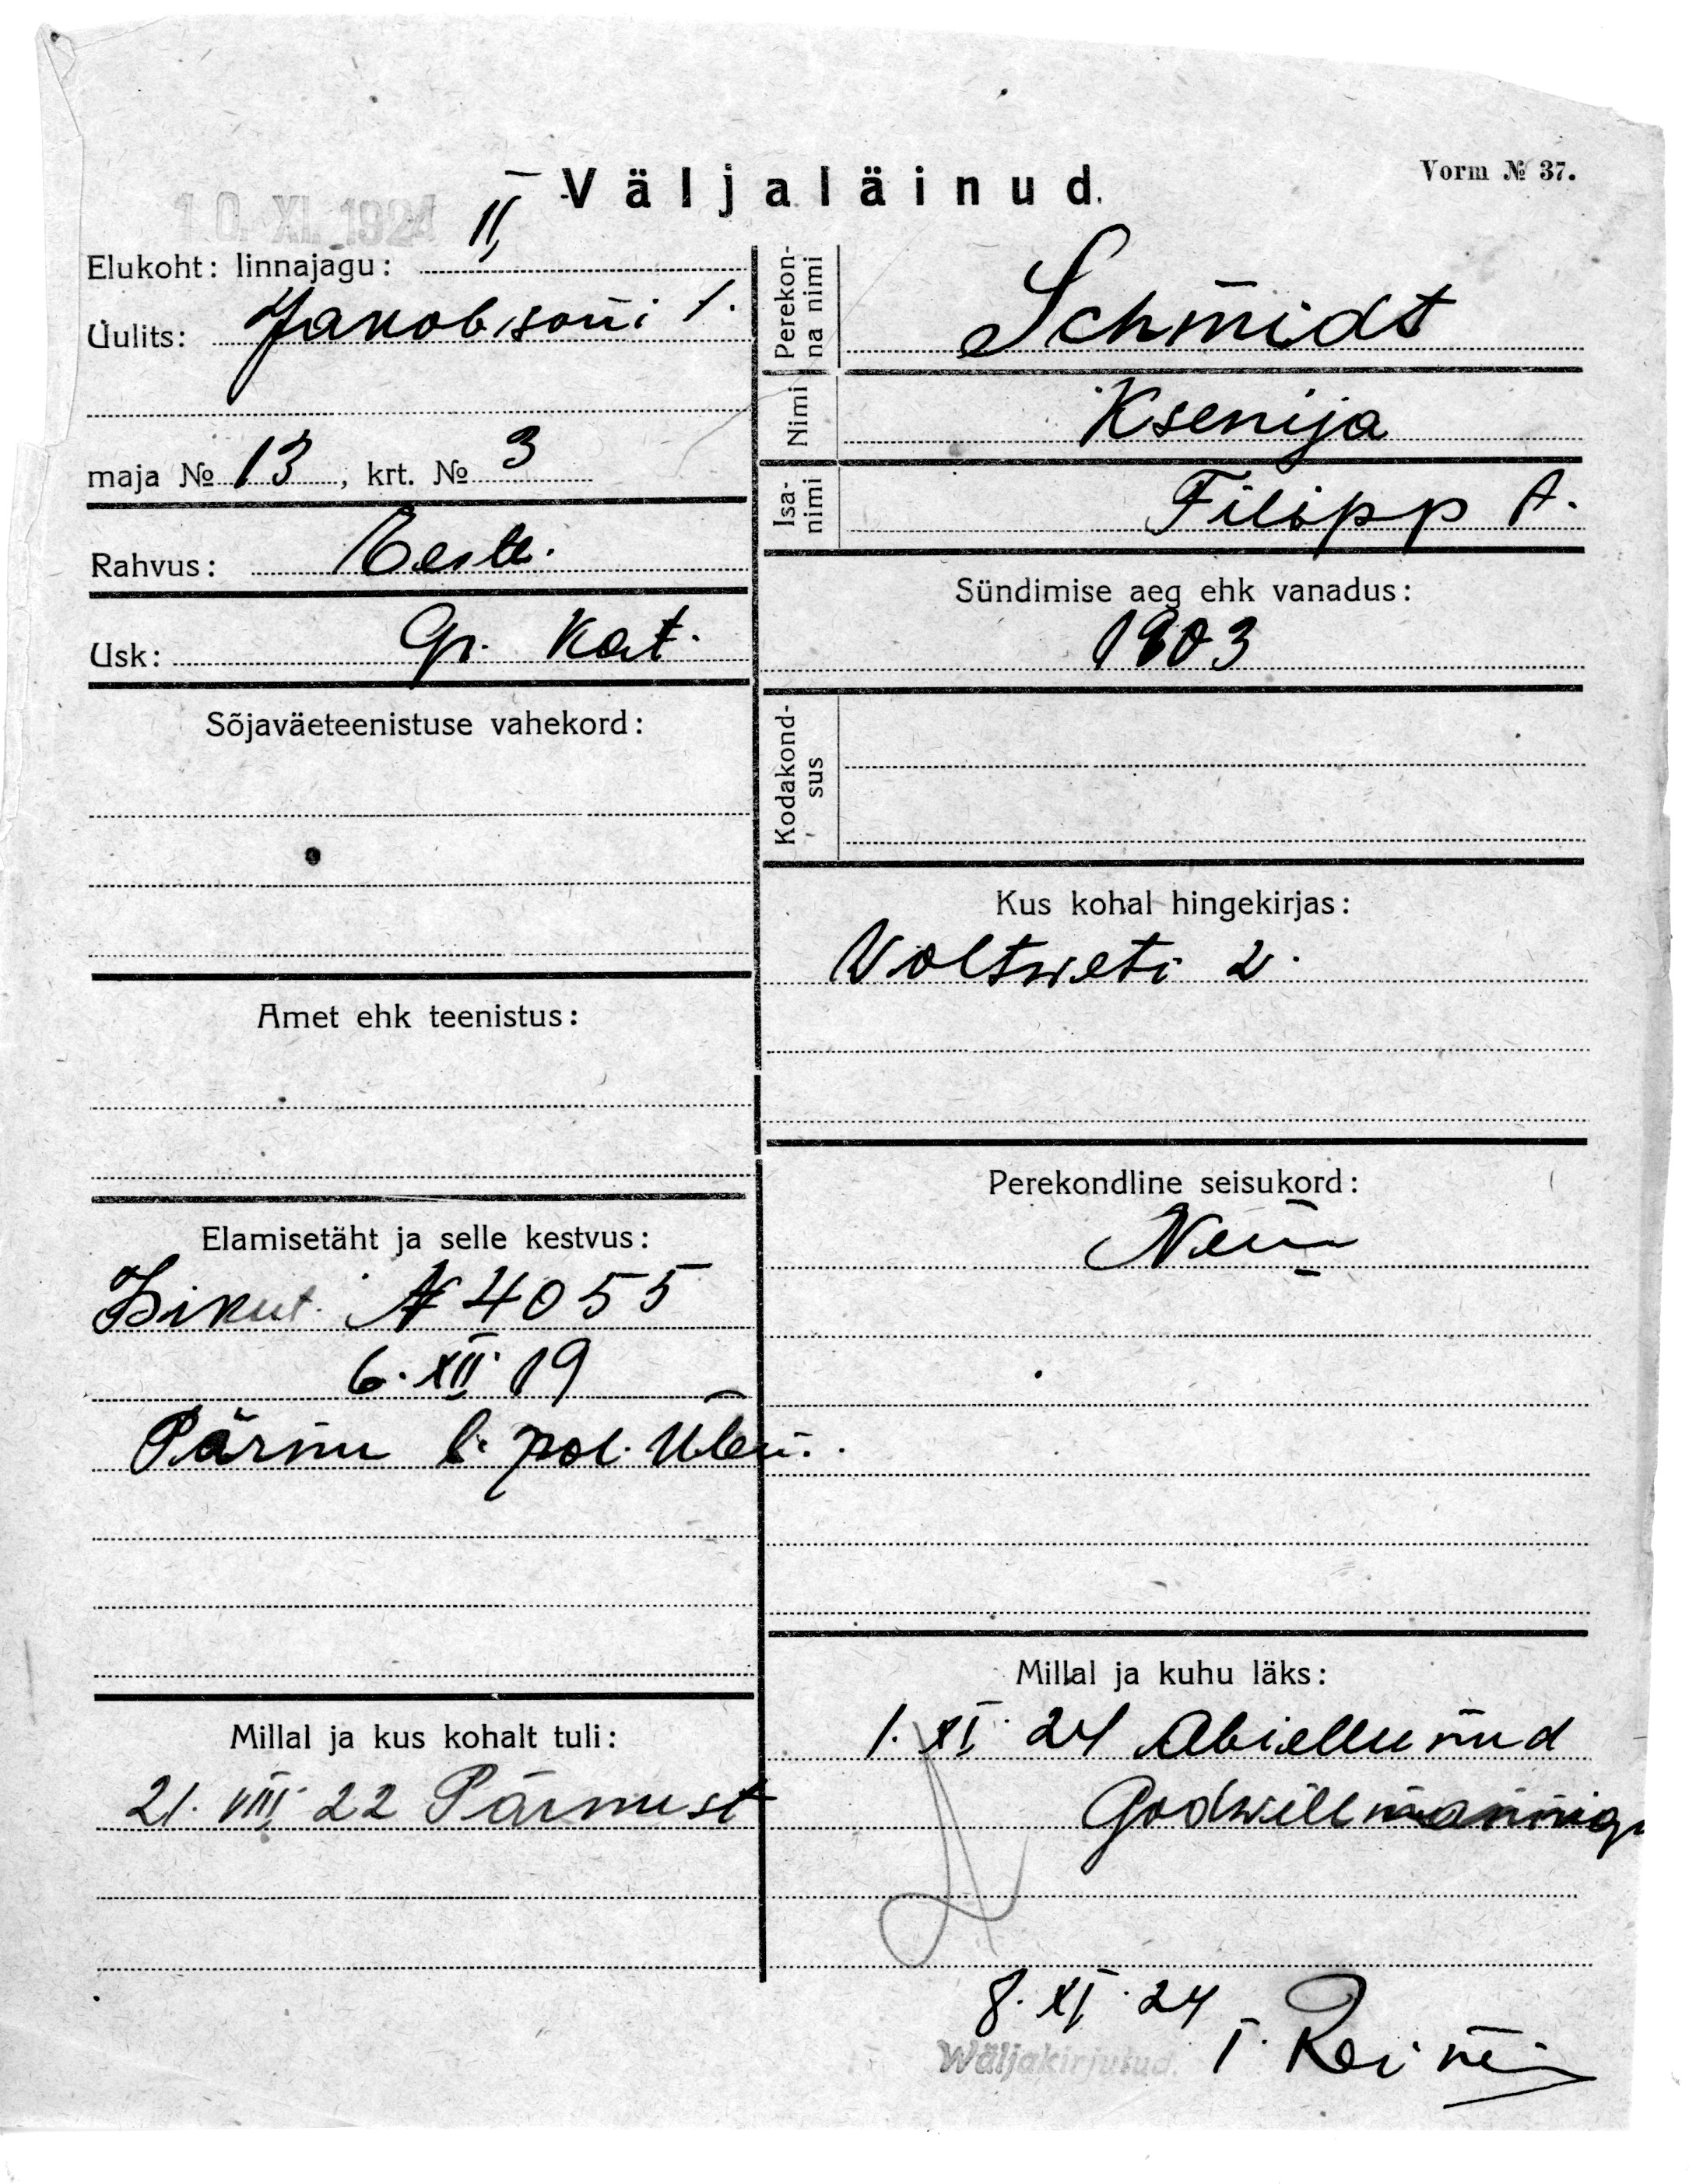 Vorm № 37.
Väljaläinud.
10. XI. 1924
Elukoht: linnajagu: II
Uulits: Jakobsoni t.
maja № 13, krt. № 3
Rahvus: Eesti.
Usk: Gr. Kat.
Sõjaväeteenistuse vahekord:
Amet ehk teenistus:
Elamisetäht ja selle kestvus:
№ 4055
6. XII 19
Pärnu l. pol. Ülem.
Millal ja kus kohalt tuli:
21. VIII 22 Pärnust
Perekonna nimi Schmidt
Nimi Ksenija
Isanimi Filipp t.
Sündimise aeg ehk vanadus:
1903
Kodakondsus
Kus kohal hingekirjas:
Woltweti v.
Perekondline seisukord:
Neiu
Millal ja kuhu läks:
1. XI 24 Abiellunud
Godwillmanniga
8. XI. 24
Wäljakirjutud.